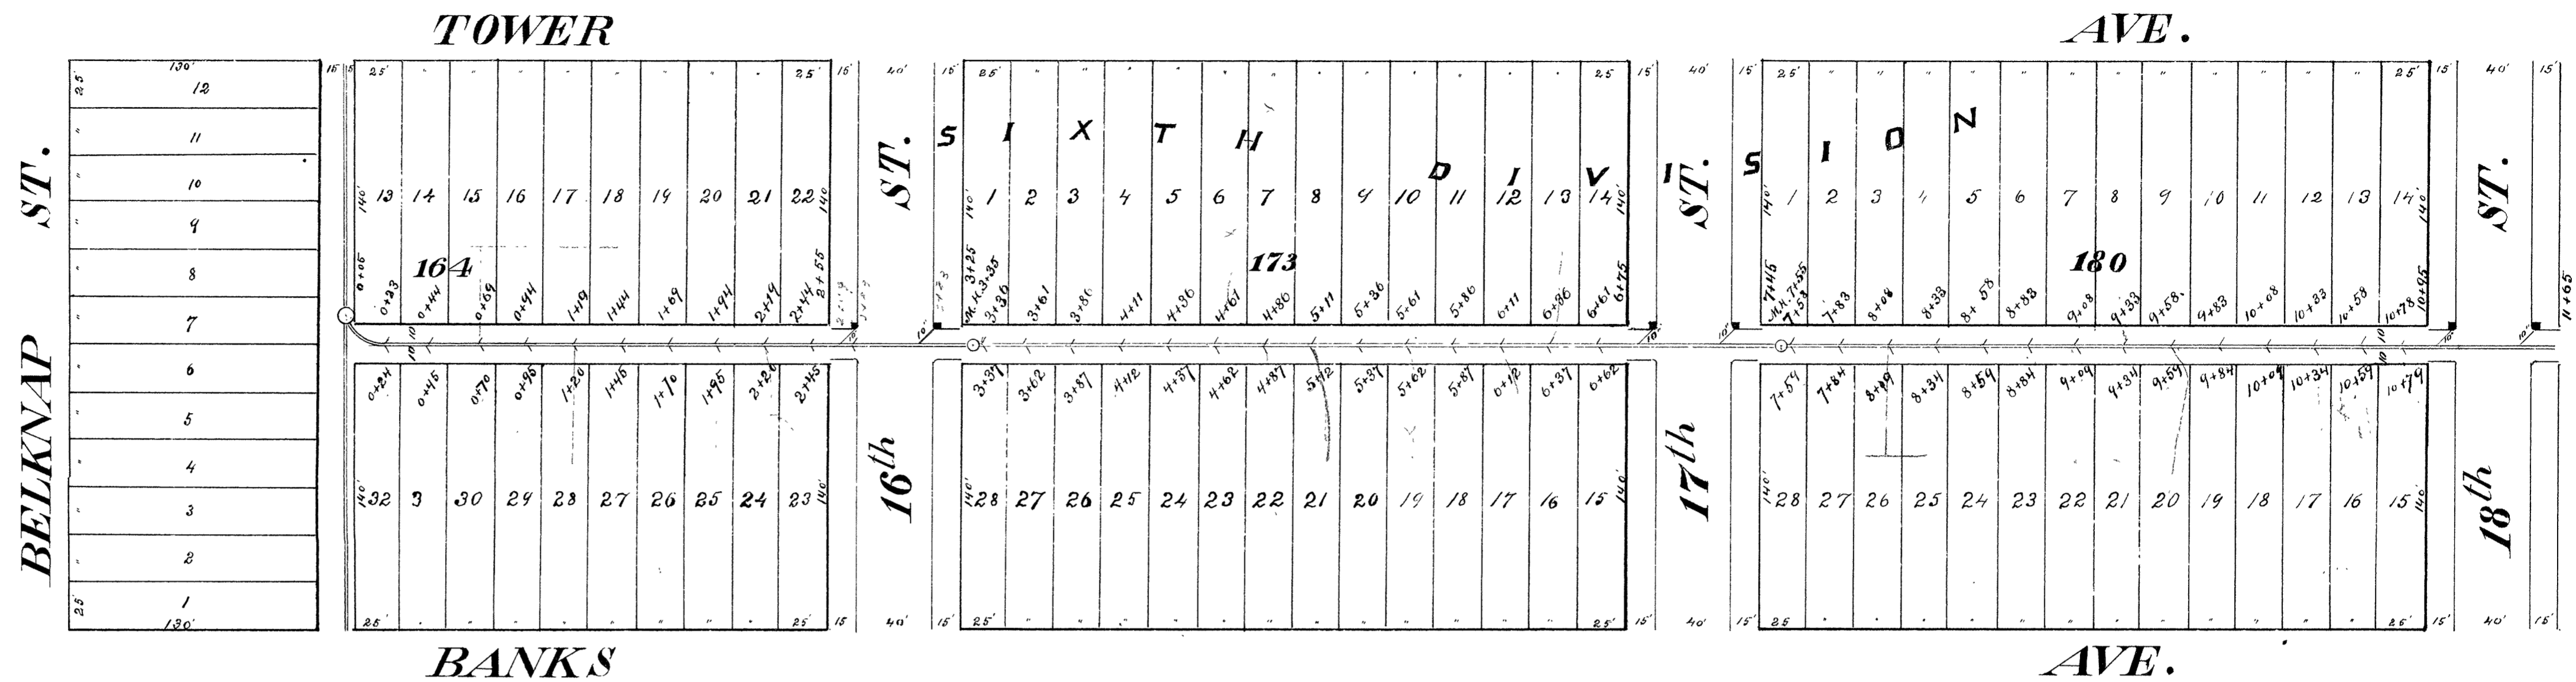 TOWER AVE.
130' 15' 15' 25' " " " " " " " " 25' 15' 40' 15' 25' " " " " " " " " " " " " 25 15' 40' 15' 25' " " " " " " " " " " " " 25' 15' 40' 15'
25' 12
" 11
" 10
" 9
" 8
" 7
" 6
" 5
" 4
" 3
" 2
25' 1
130'
BELKNAP ST.
SIXTH DIVISION
140' 13 14 15 16 17 18 19 20 21 22 140'
164
0+06 0+23 0+44 0+69 0+94 1+19 1+44 1+69 1+94 2+19 2+44 2+55
10 10
0+24 0+45 0+70 0+95 1+20 1+45 1+70 1+95 2+20 2+45
140' 32 3 30 29 28 27 26 25 24 23 140'
25' " " " " " " " " 25' 15 40' 15'
16th ST.
10" 10"
140' 1 2 3 4 5 6 7 8 9 10 11 12 13 14 140'
173
3+25 M.H.3+35 3+36 3+61 3+86 4+11 4+36 4+61 4+86 5+11 5+36 5+61 5+86 6+11 6+36 6+61 6+75
3+37 3+62 3+87 4+12 4+37 4+62 4+87 5+12 5+37 5+62 5+87 6+12 6+37 6+62
140' 28 27 26 25 24 23 22 21 20 19 18 17 16 15 140'
25' " " " " " " " " " " " " 25' 15' 40' 15'
17th ST.
10" 10"
140' 1 2 3 4 5 6 7 8 9 10 11 12 13 14 140'
180
7+45 M.H.7+55 7+58 7+83 8+08 8+33 8+58 8+83 9+08 9+33 9+58 9+83 10+08 10+33 10+58 10+78 10+95
10 10
7+59 7+84 8+09 8+34 8+59 8+84 9+09 9+34 9+59 9+84 10+09 10+34 10+59 10+79
140' 28 27 26 25 24 23 22 21 20 19 18 17 16 15 140'
25 " " " " " " " " " " " " 25' 15' 40' 15'
18th ST.
10" 10"
11+65
BANKS AVE.